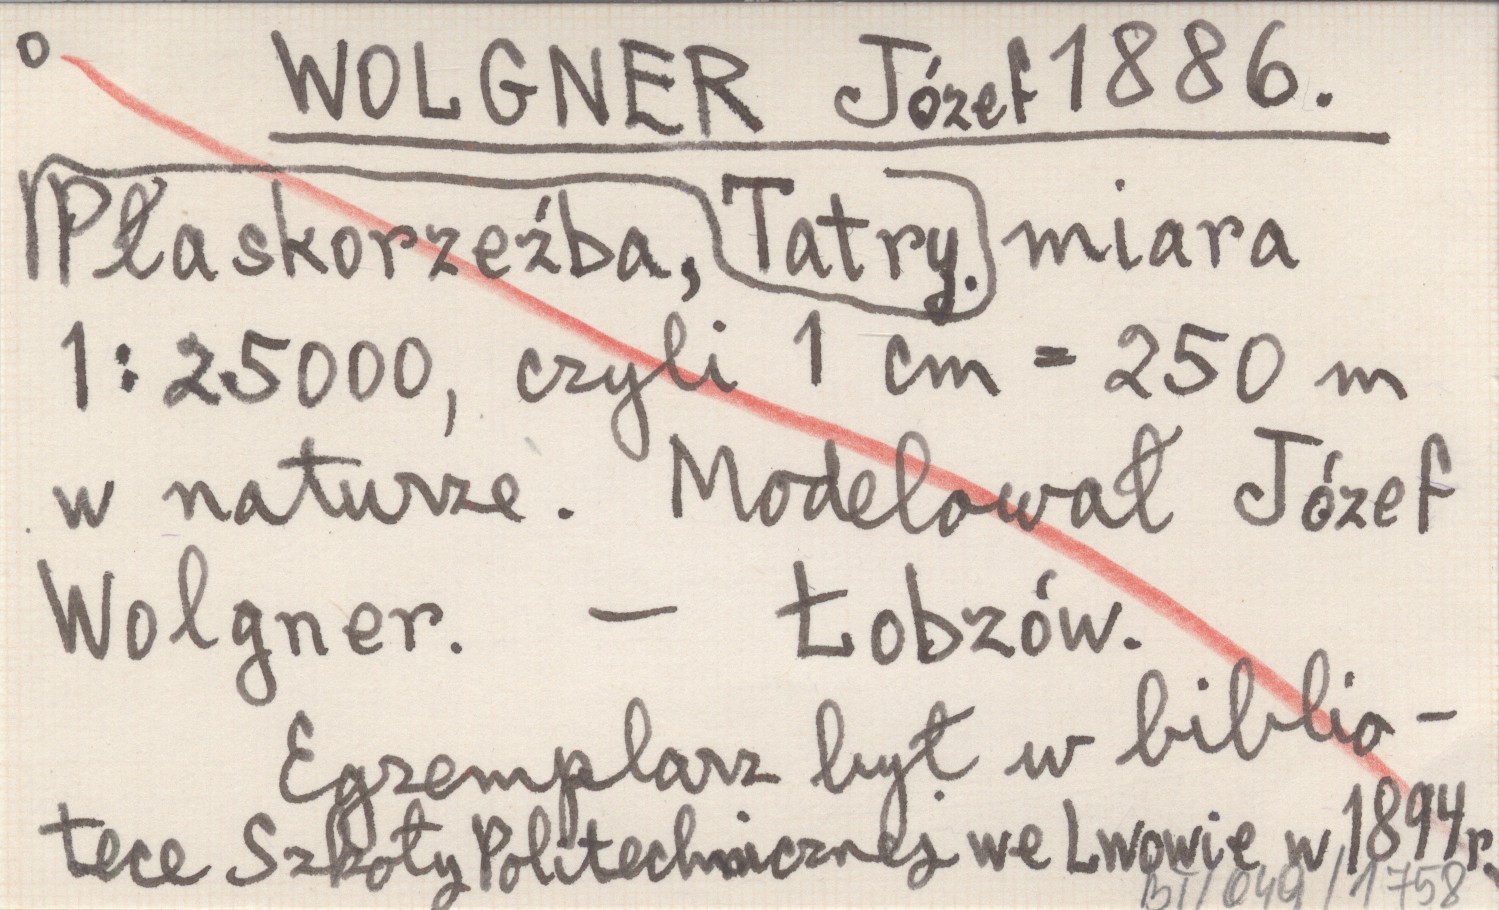 o WOLGNER Józef 1886.
Płaskorzeźba, Tatry. miara
1:25000, czyli 1 cm = 250 m
w naturze. Modelował Józef
Wolgner. — Łobzów.
Egzemplarz był w biblio-
tece Szkoły Politechnicznej we Lwowie w 1894 r.
BT/049/1758